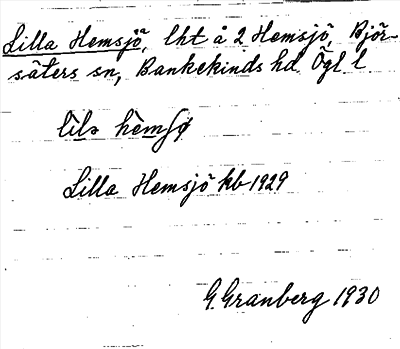 Lilla Hemsjö, lht å 2 Hemsjö, Björ-
säters sn, Bankekinds hd Ögl l
Lilla Hemsjö kb 1929
G. Granberg 1930